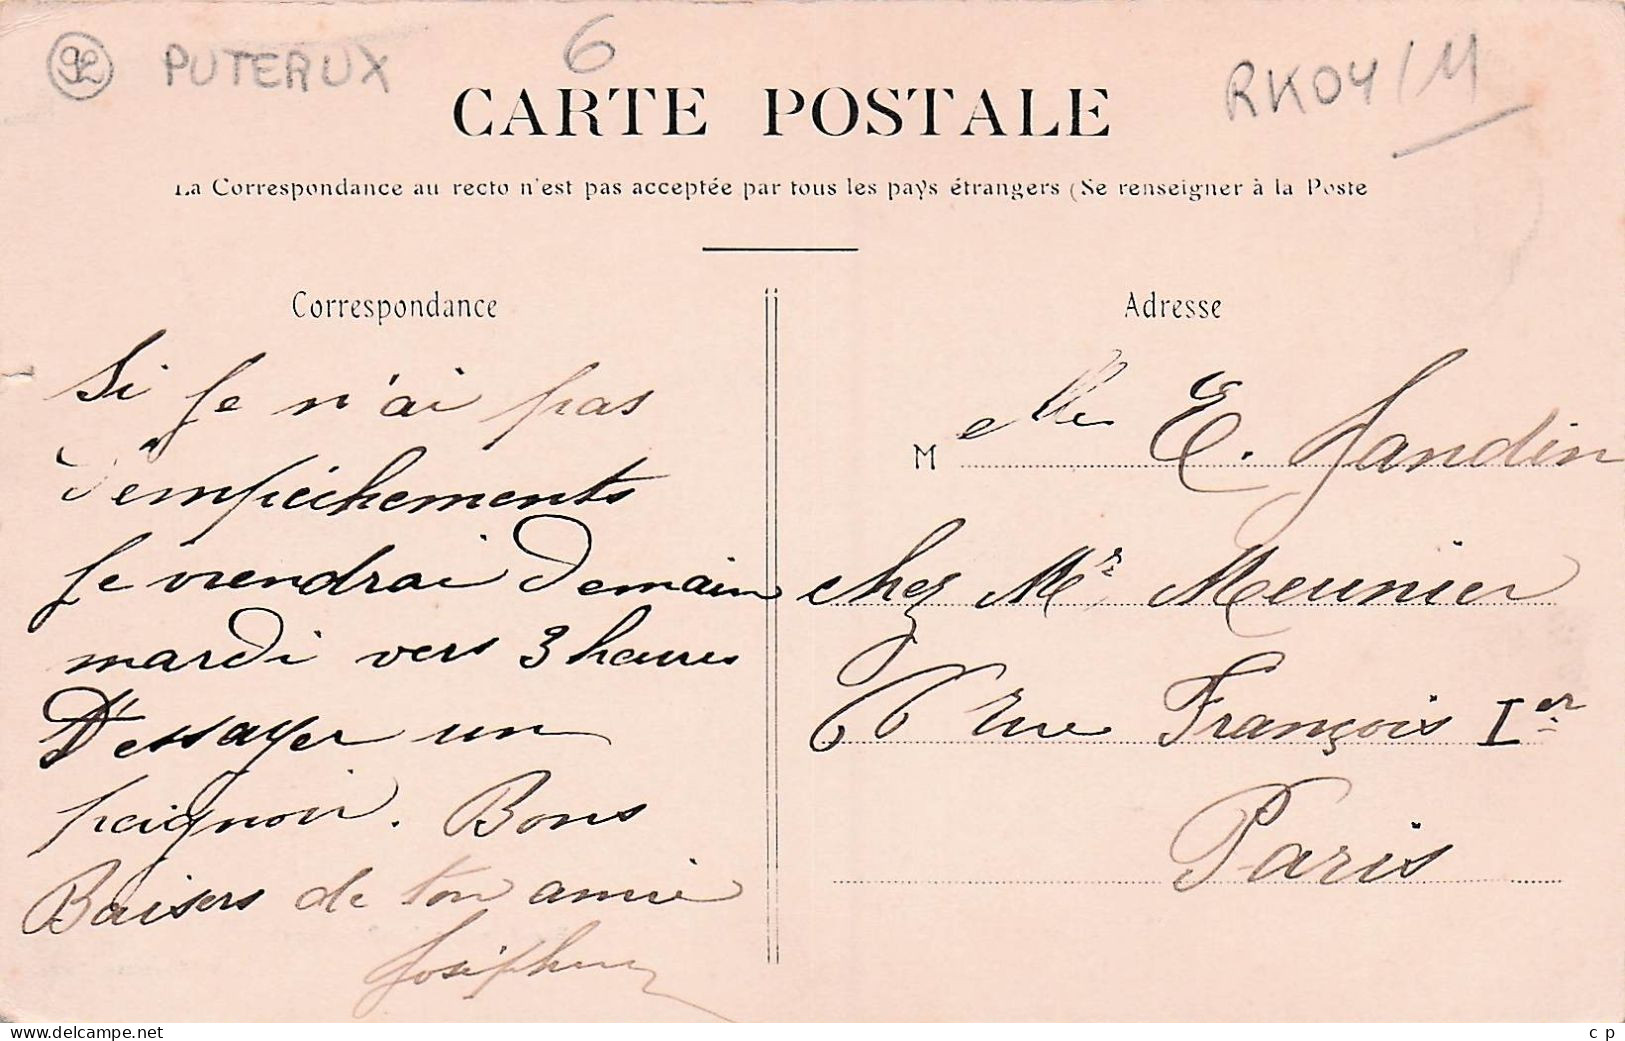 92 PUTEAUX 6 RK04/11
CARTE POSTALE
La Correspondance au recto n'est pas acceptée par tous les pays étrangers (Se renseigner à la Poste
Correspondance
Si Je n'ai pas
d'empéchements
Je viendrai Demain
mardi vers 3 heures
D'essayer un
peignoir. Bons
Baisers de ton amie
Joséphine
Adresse
Melle E. Jandin
chez Mr Meunier
66 rue François Ier
Paris
www.delcampe.net
c p